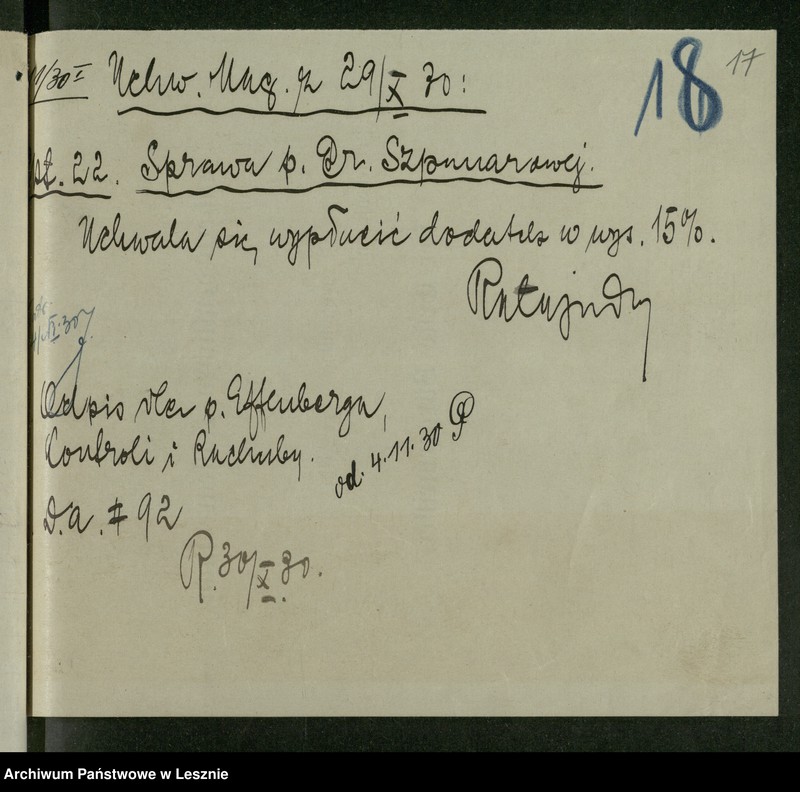 18 17
Uchw. Mag. z 29/X 30:
pt. 22. Sprawa p. Dr. Szpunarowej.
Uchwala się wypłacić dodatek w wys. 15%.
Ratajs
Odpis dla p. Effenberga,
Kontroli i Rachuby.
od. 4.11.30
D.a. # 92
R. 30/X 30.
Archiwum Państwowe w Lesznie